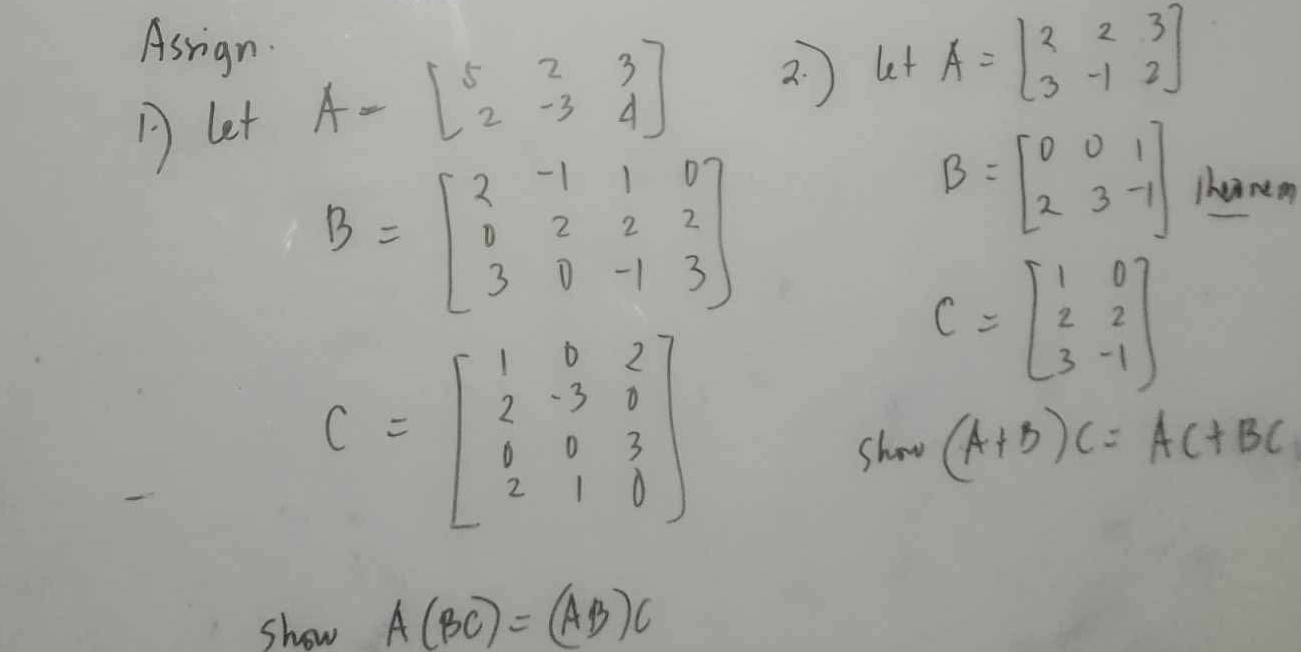 Assign.
1.) let A = [5 2 3
2 -3 4]
B = [2 -1 1 0
0 2 2 2
3 0 -1 3]
C = [1 0 2
2 -3 0
0 0 3
2 1 0]
show A(BC) = (AB)C
2.) let A = [2 2 3
3 -1 2]
B = [0 0 1
2 3 -1] Theorem
C = [1 0
2 2
3 -1]
show (A+B)C = AC+BC